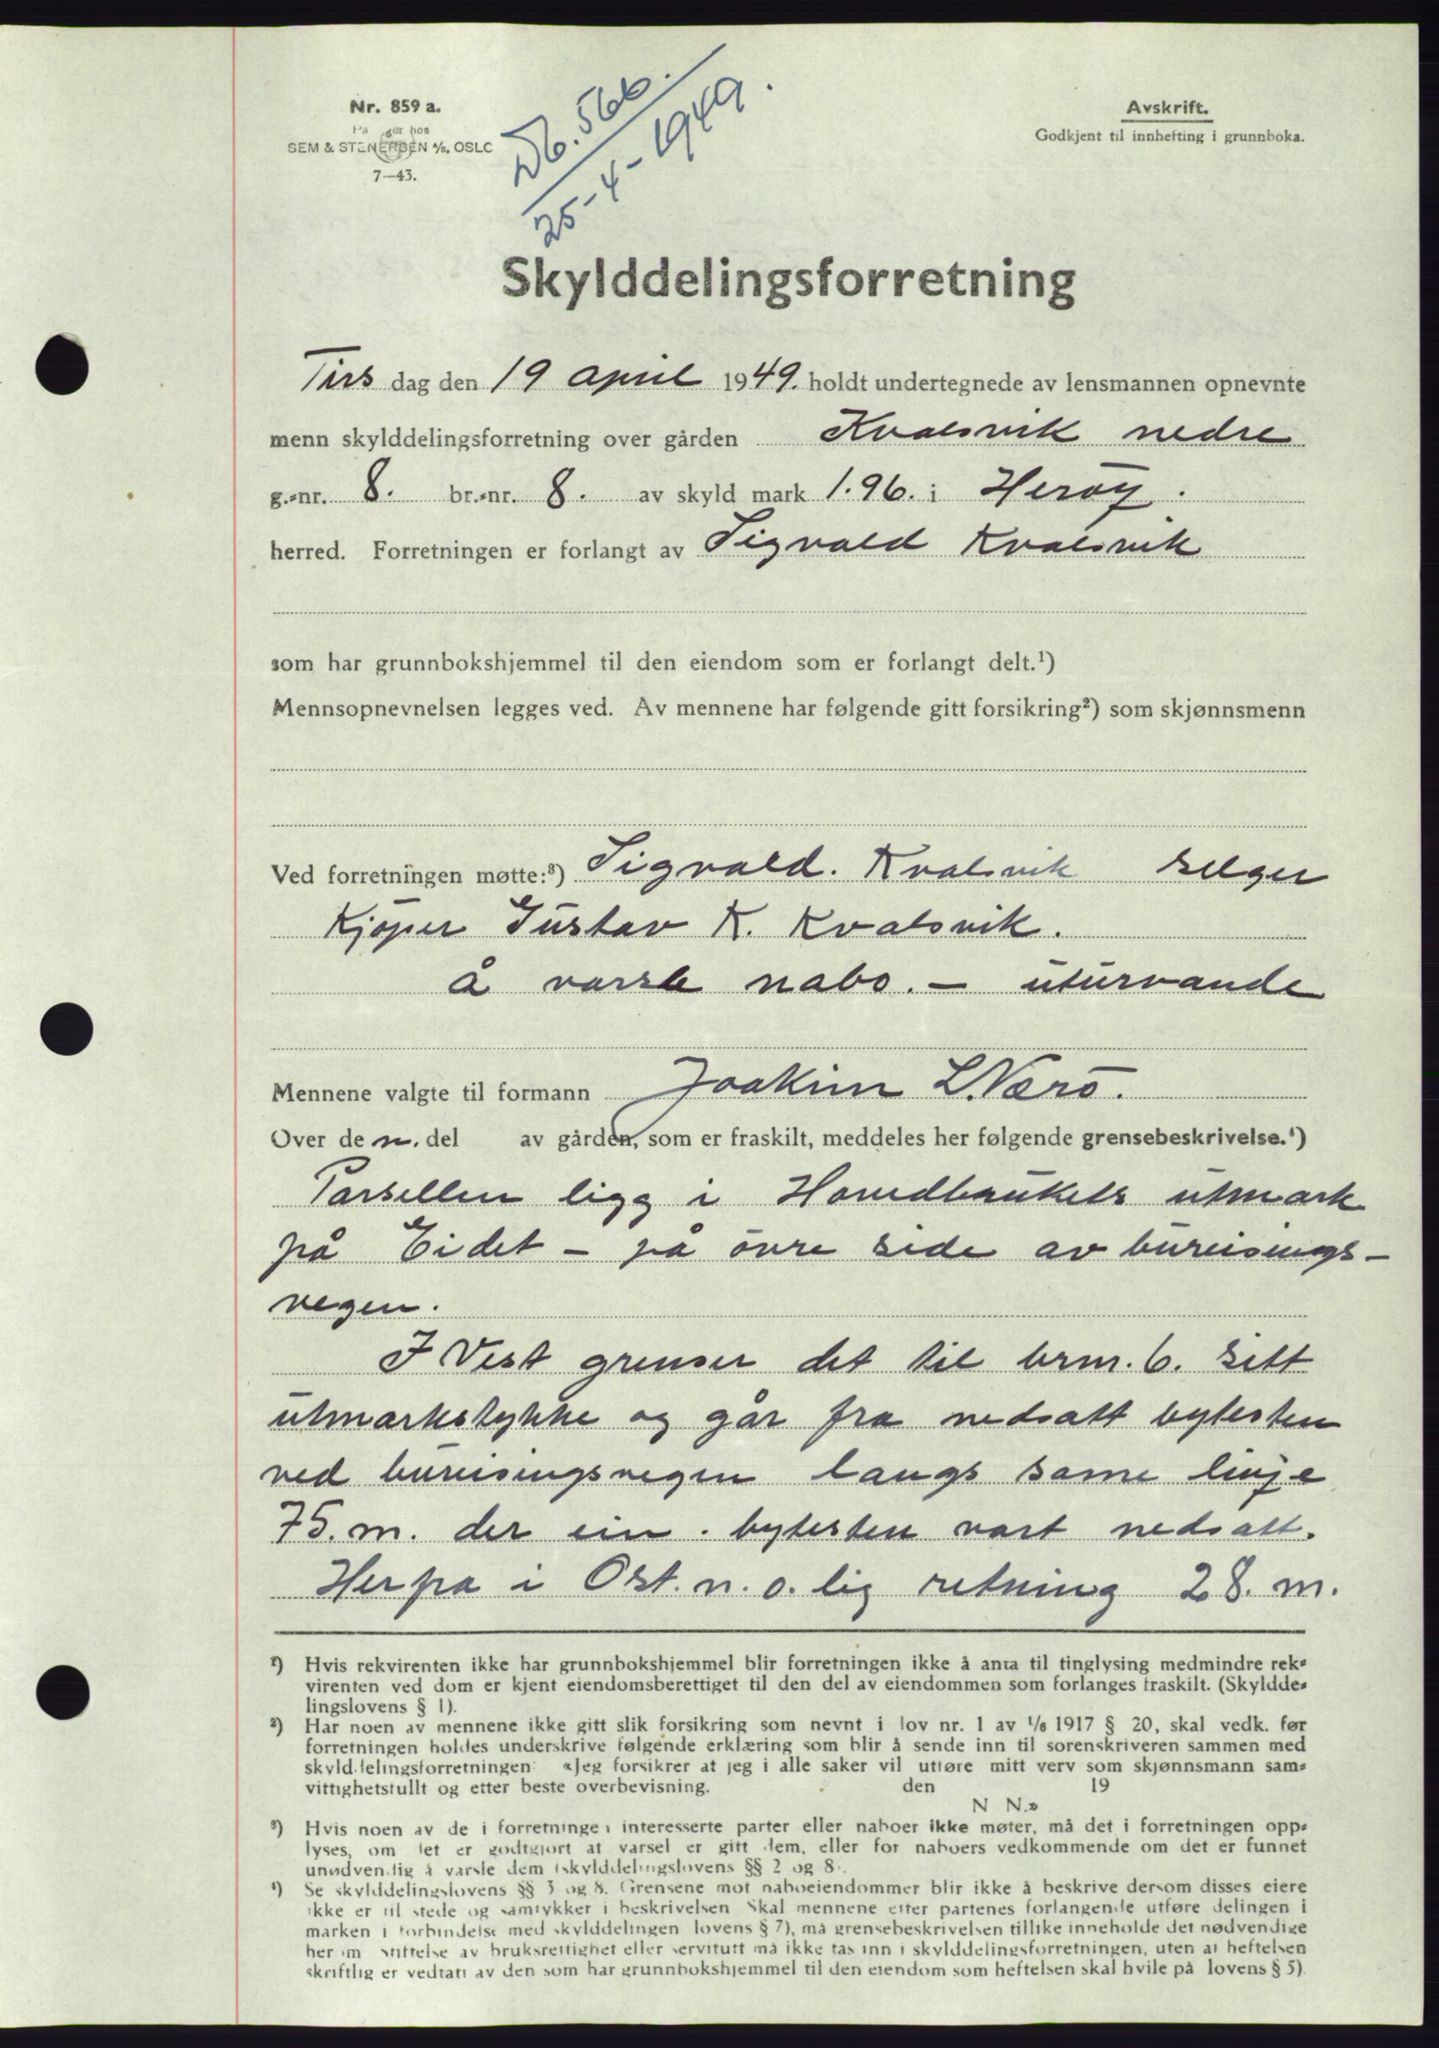 Nr. 859 a.
SEM & STENERSEN A/S, OSLO
7—43.
Db. 566.
25-4-1949.
Avskrift.
Godkjent til innhefting i grunnboka.
Skylddelingsforretning
Tirs dag den 19 april 1949. holdt undertegnede av lensmannen opnevnte
menn skylddelingsforretning over gården Kvalsvik nedre
g.=nr. 8. br.=nr. 8. av skyld mark 1.96. i Herøy.
herred. Forretningen er forlangt av Sigvald Kvalsvik
som har grunnbokshjemmel til den eiendom som er forlangt delt.¹)
Mennsopnevnelsen legges ved. Av mennene har følgende gitt forsikring²) som skjønnsmenn
Ved forretningen møtte:³) Sigvald. Kvalsvik selger
Kjöper Gustav K. Kvalsvik.
Å varsle nabo. — uturvande
Mennene valgte til formann Joakim L. Nærö.
Over de n. del av gården, som er fraskilt, meddeles her følgende grensebeskrivelse.⁴)
Parsellen ligg i Hovudbrukets utmark
på Eidet – på övre side av büreisings-
vegen.
I Vest grenser det til brm. 6. sitt
utmarkstykke og går fra nedsatt bytesten
ved büreisingsvegen langs same linje
75. m. der ein . bytesten vart nedsatt.
Herfra i Ost. n. o. lig retning 28. m.
¹) Hvis rekvirenten ikke har grunnbokshjemmel blir forretningen ikke å anta til tinglysing medmindre rek=
virenten ved dom er kjent eiendomsberettiget til den del av eiendommen som forlanges fraskilt. (Skyldde=
lingslovens § 1).
²) Har noen av mennene ikke gitt slik forsikring som nevnt i lov nr. 1 av 1/6 1917 § 20, skal vedk. før
forretningen holdes underskrive følgende erklæring som blir å sende inn til sorenskriveren sammen med
skylddelingsforretningen: «Jeg forsikrer at jeg i alle saker vil utføre mitt verv som skjønnsmann sam=
vittighetsfullt og etter beste overbevisning. den 19
N N.»
³) Hvis noen av de i forretningen interesserte parter eller naboer ikke møter, må det i forretningen opp=
lyses, om det er godtgjort at varsel er gitt dem, eller for naboers vedkommende om det er funnet
unødvendig å varsle dem (skylddelingslovens §§ 2 og 8).
⁴) Se skylddelingslovens §§ 3 og 8. Grensene mot naboeiendommer blir ikke å beskrive dersom disses eiere
ikke er til stede og samtykker i beskrivelsen Skal mennene etter partenes forlangende utføre delingen i
marken i forbindelse med skylddelingen lovens § 7), må grensebeskrivelsen tillike inneholde det nødvendige
her om stiftelse av bruksrettighet eller servitutt må ikke tas inn i skylddelingsforretningen, uten at heftelsen
skriftlig er vedtatt av den som har grunnbokshjemmel til den eiendom som heftelsen skal hvile på lovens § 5).